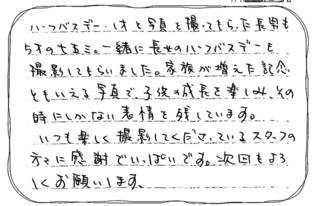 ハーフバスデー、1才と写真を撮ってもらった長男も
5才の七五三。一緒に長女のハーフバスデーも
撮影してもらいました。家族が増えた記念
ともいえる写真で、子供の成長を楽しみ、その
時にしかない表情を残しています。
いつも楽しく撮影してくださっているスタッフの
方々に感謝でいっぱいです。次回もよろ
しくお願いします。